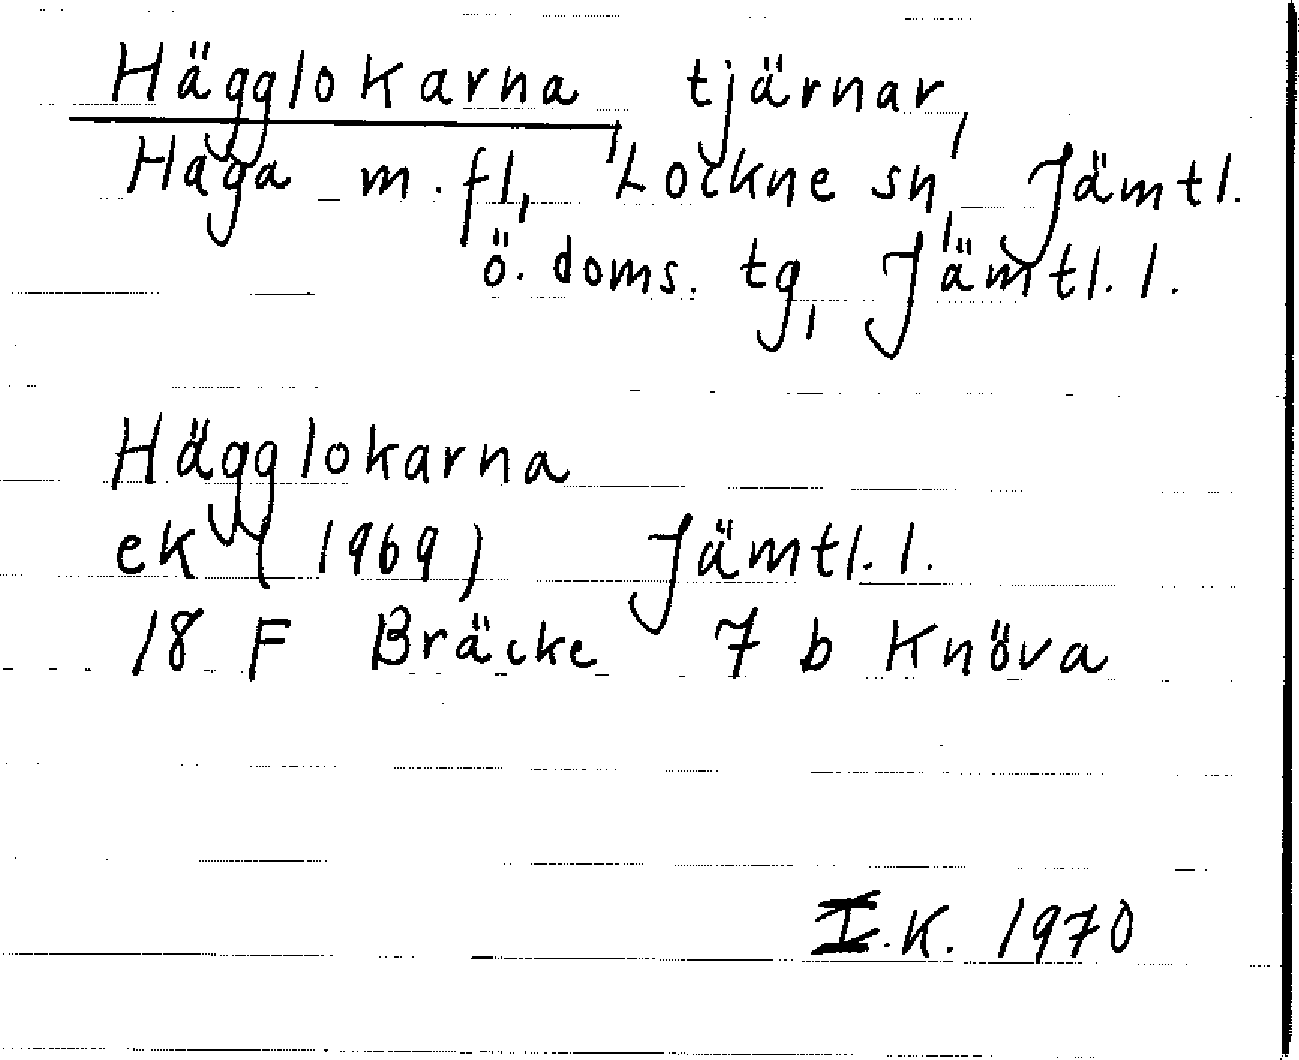 Hägglokarna, tjärnar,
Haga m.fl, Lockne sn, Jämtl.
ö. doms. tg, Jämtl. l.
Hägglokarna
ek (1969) Jämtl. l.
18 F Bräcke 7 b Knöva
I.K. 1970